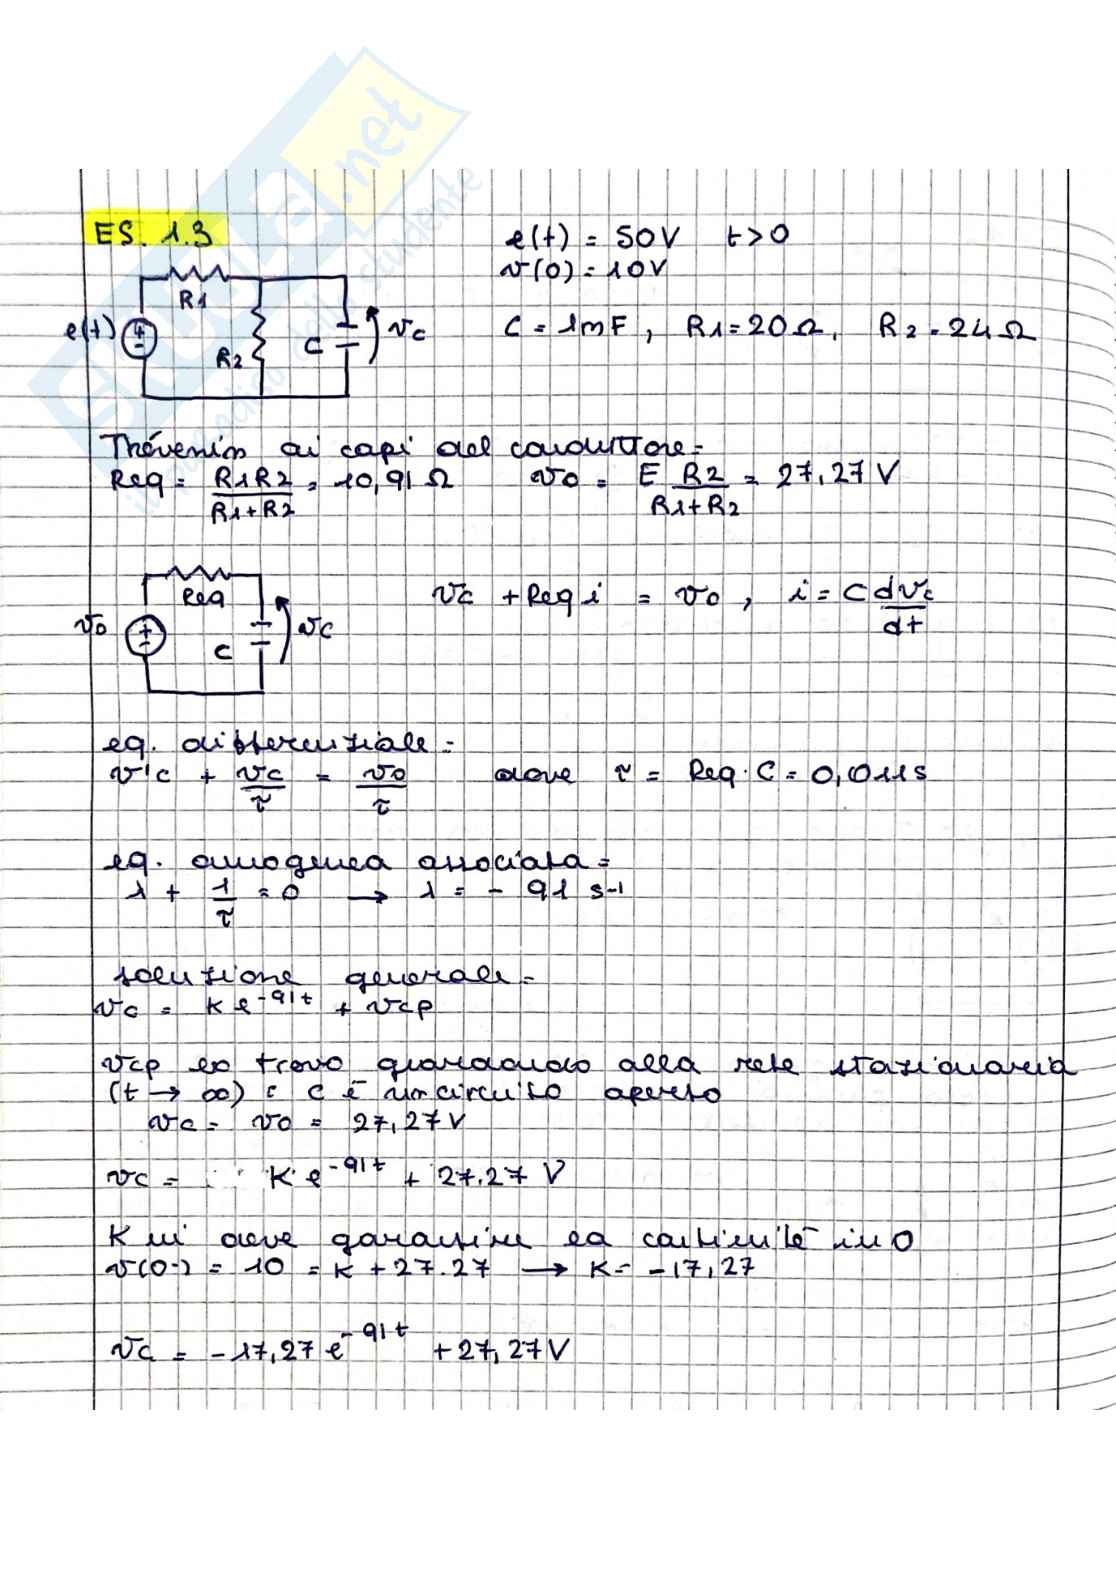 ES. 1.3
e(t) = 50V t>0
v(0) = 10V
C = 1mF, R1 = 20Ω, R2 = 24Ω
R1
e(t)
R2
C
vc
Thévenin ai capi del conduttore:
Req = R1R2/(R1+R2) = 10,91Ω v0 = E R2/(R1+R2) = 27,27V
Req
v0
C
vc
vc + Req i = v0, i = C dvc/dt
eq. differenziale:
v'c + vc/τ = v0/τ dove τ = Req·C = 0,011s
eq. omogenea associata:
λ + 1/τ = 0 → λ = - 91 s-1
soluzione generale:
vc = K e^-91t + vcp
vcp lo trovo guardando alla rete stazionaria
(t → ∞) : C è un circuito aperto
vc = v0 = 27,27V
vc = K e^-91t + 27.27 V
K mi deve garantire la continuità in 0
v(0-) = 10 = K + 27.27 → K = -17,27
vc = -17,27 e^-91t + 27,27V
skuola.net
il paradiso dello studente